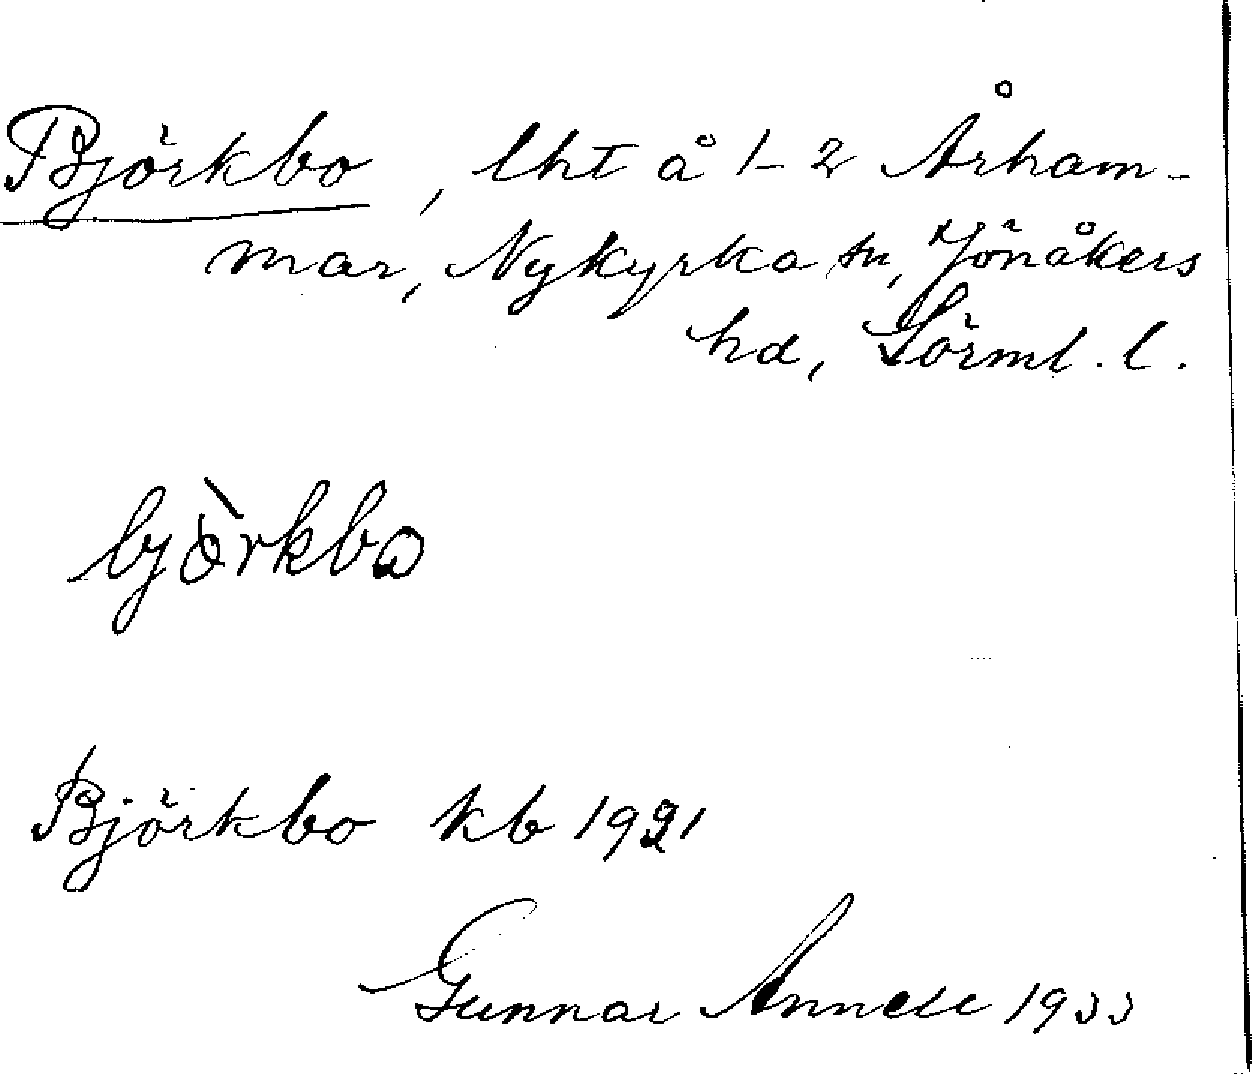 Björkbo, lht å 1-2 Årham-
mar, Nykyrka sn, Jönåkers
hd, Sörml. l.
bjò̈rkbω
Björkbo kb 1921
Gunnar Annell 1933